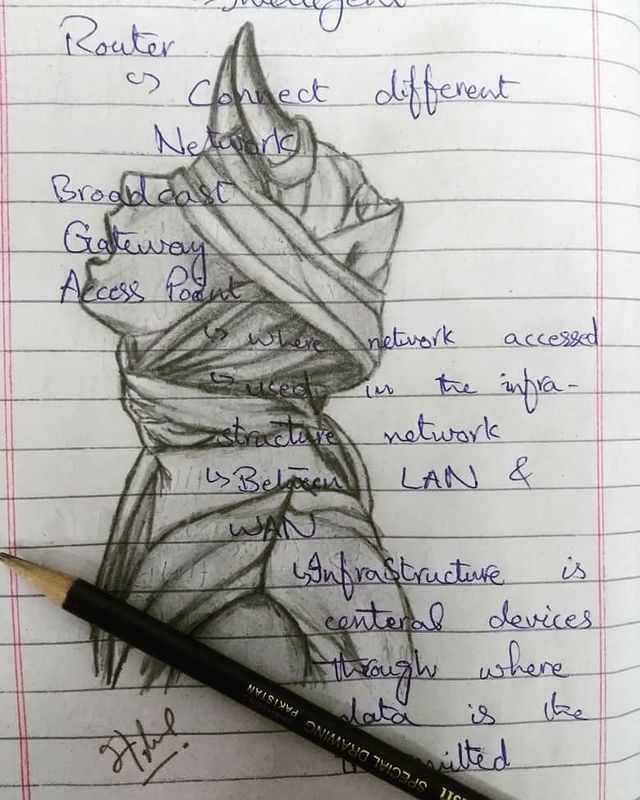 Intelligent
Router
↳ Connect different
Network
Broadcast
Gateway
Access Point
↳ where network accessed
↳ used in the infra-
structure network
↳ Between LAN &
WAN
↳ Infrastructure is
centeral devices
through where
data is the
SPECIAL DRAWING PAKISTAN